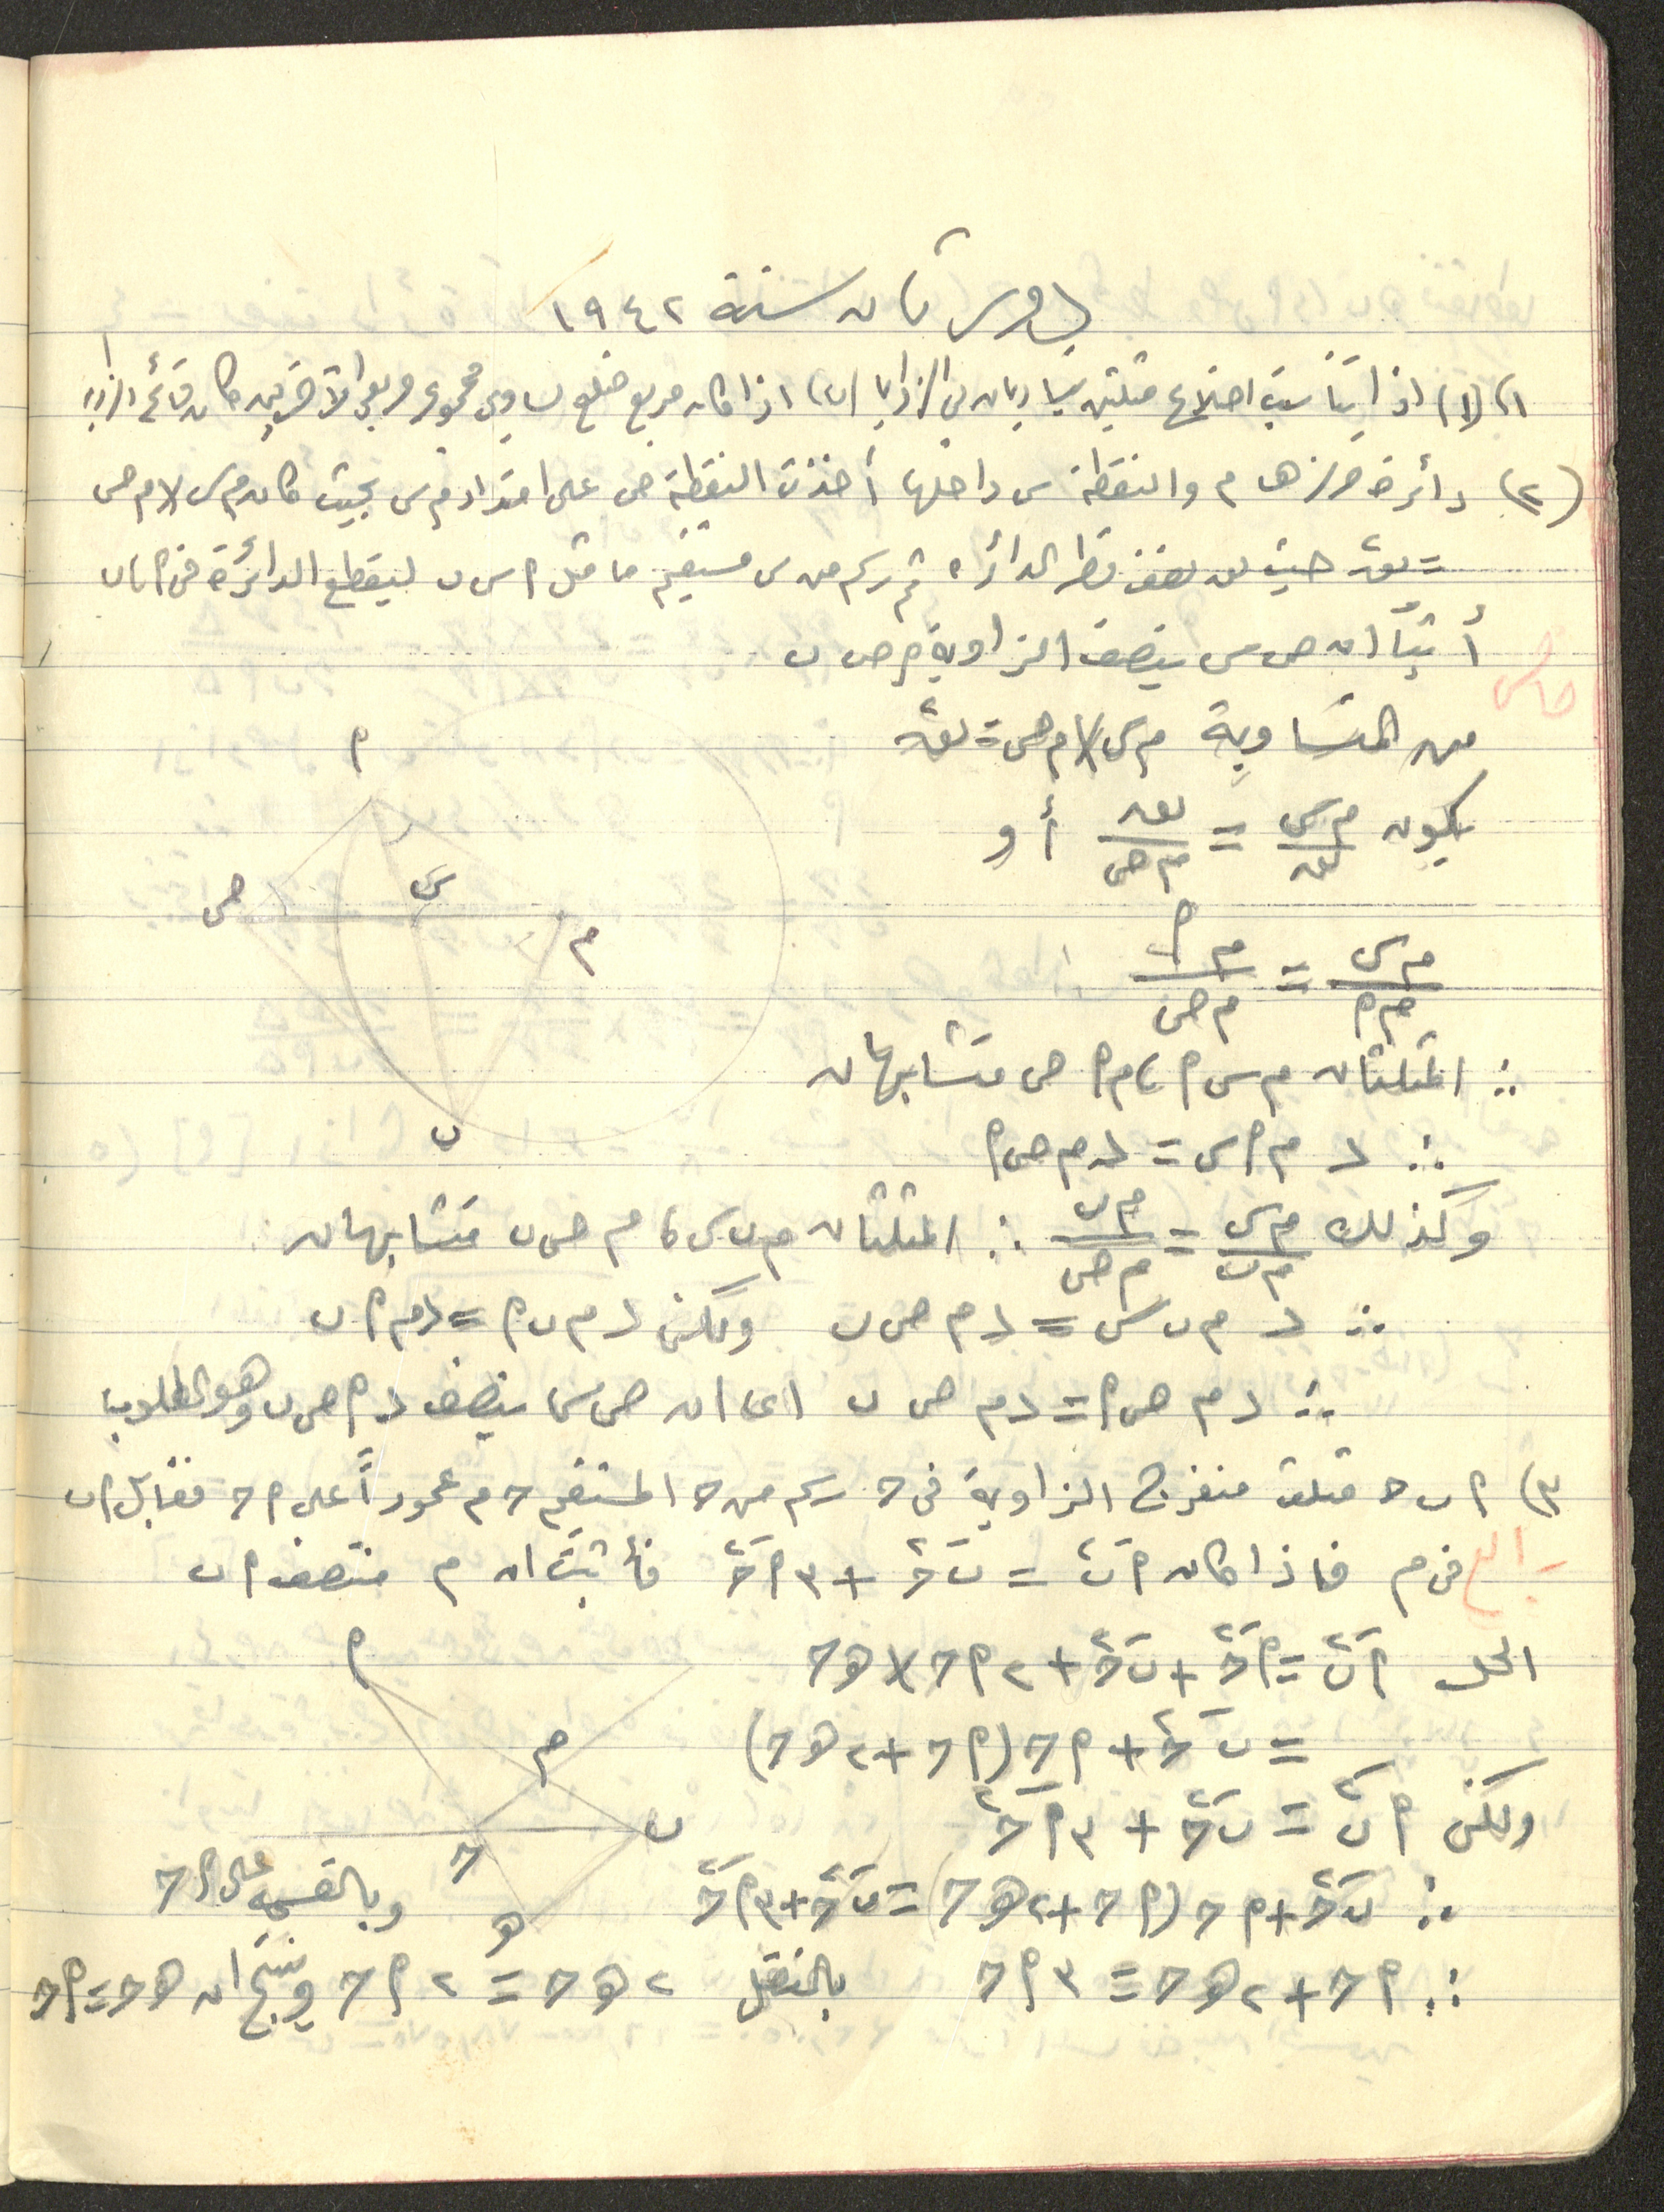 سنة ١٩٤٢
(١) (١) اذا تناسبت اضلاع مثلثين يتساويان في الزوايا (ب) اذا كان مربع ضلع يساوى مجموع مربعى الآخرين كان قائم الزاوية
(٢) دائرة مركزها م والنقطة س داخلها أخذت النقطة ص على امتداد م س بحيث كان م س × م ص
= نق٢ حيث نق نصف قطر الدائرة ثم رسم من س مستقيم ما مثل ا س ب ليقطع الدائرة فى ا، ب
أثبت ان ص س ينصف الزاوية ا ص ب
خامس
من المتساوية م س × م ص = نق٢
يكون م س / نق = نق / م ص أو
م س / م ا = م ا / م ص
∴ المثلثان م س ا، م ا ص متشابهان
∴ د م ا س = د م ص ا
وكذلك م س / م ب = م ب / م ص ∴ المثلثان م ب س، م ص ب متشابهان
∴ د م ب س = د م ص ب ولكن د م ب ا = د م ا ب
∴ د م ص ا = د م ص ب اى ان ص س ينصف د ا ص ب وهو المطلوب
ا
س
ص
م
ب
٣) ا ب ح مثلث منفرج الزاوية فى ح رسم من ح المستقيم ح م عموداً على ا ح فقابل ا ب
رابع
فى م فاذا كان ا ب٢ = ب ح٢ + ٣ ا ح٢ فأثبت ان م منتصف ا ب
الحل ا ب٢ = ا ح٢ + ب ح٢ + ٢ ا ح × ه ح
= ب ح٢ + ا ح (ا ح + ٢ ه ح)
ولكن ا ب٢ = ب ح٢ + ٣ ا ح٢
∴ ب ح٢ + ا ح (ا ح + ٢ ه ح) = ب ح٢ + ٣ ا ح٢ وبالقسمة على ا ح
∴ ا ح + ٢ ه ح = ٣ ا ح بالنقل ٢ ه ح = ٢ ا ح وينتج ان ه ح = ا ح
ا
م
ب
ح
ه